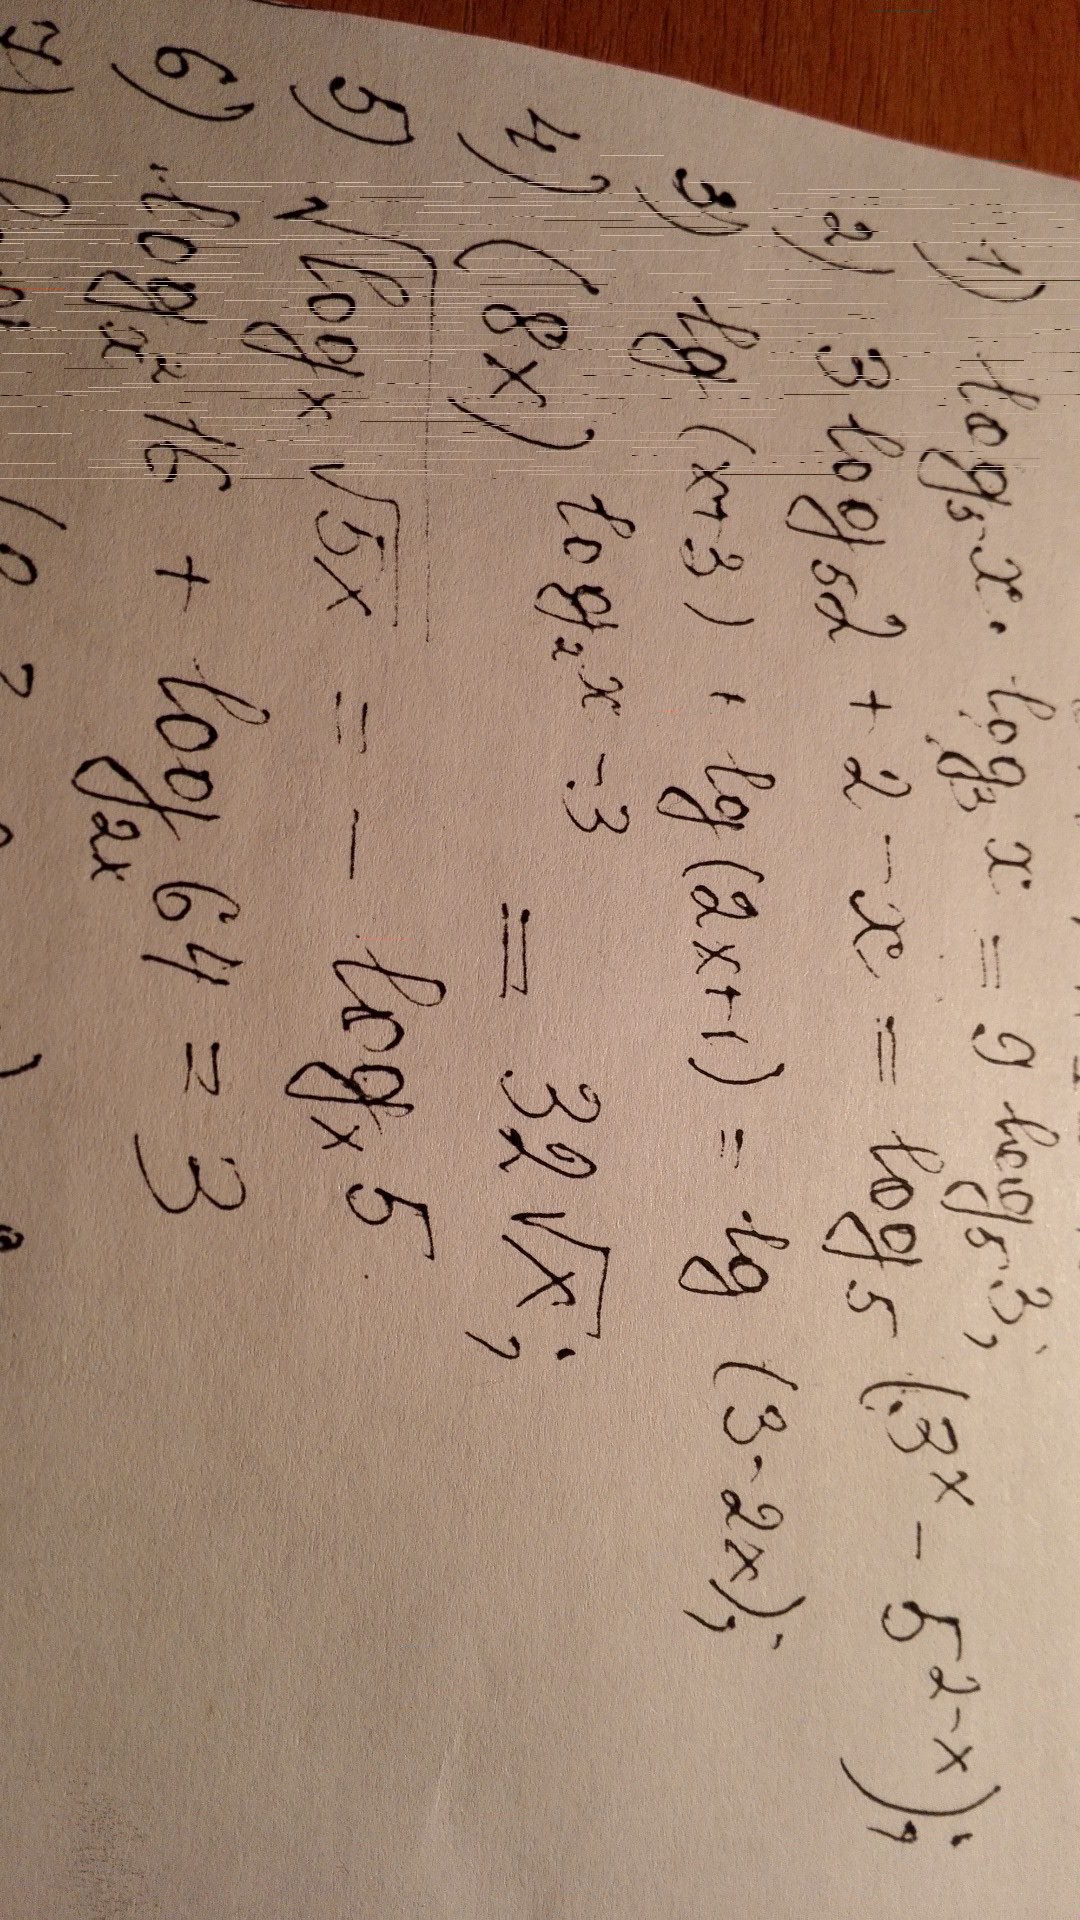 1) log₅x · log₃ x = 9 log₅3;
2) 3 log₅2 + 2 - x = log₅ (3ˣ - 5²⁻ˣ);
3) lg (x+3) + lg (2x+1) = lg (3-2x);
4) (8x) log₂x -3 = 32√x;
5) √logₓ √5x = - logₓ 5
6) log_x² 16 + log_2x 64 = 3
7)